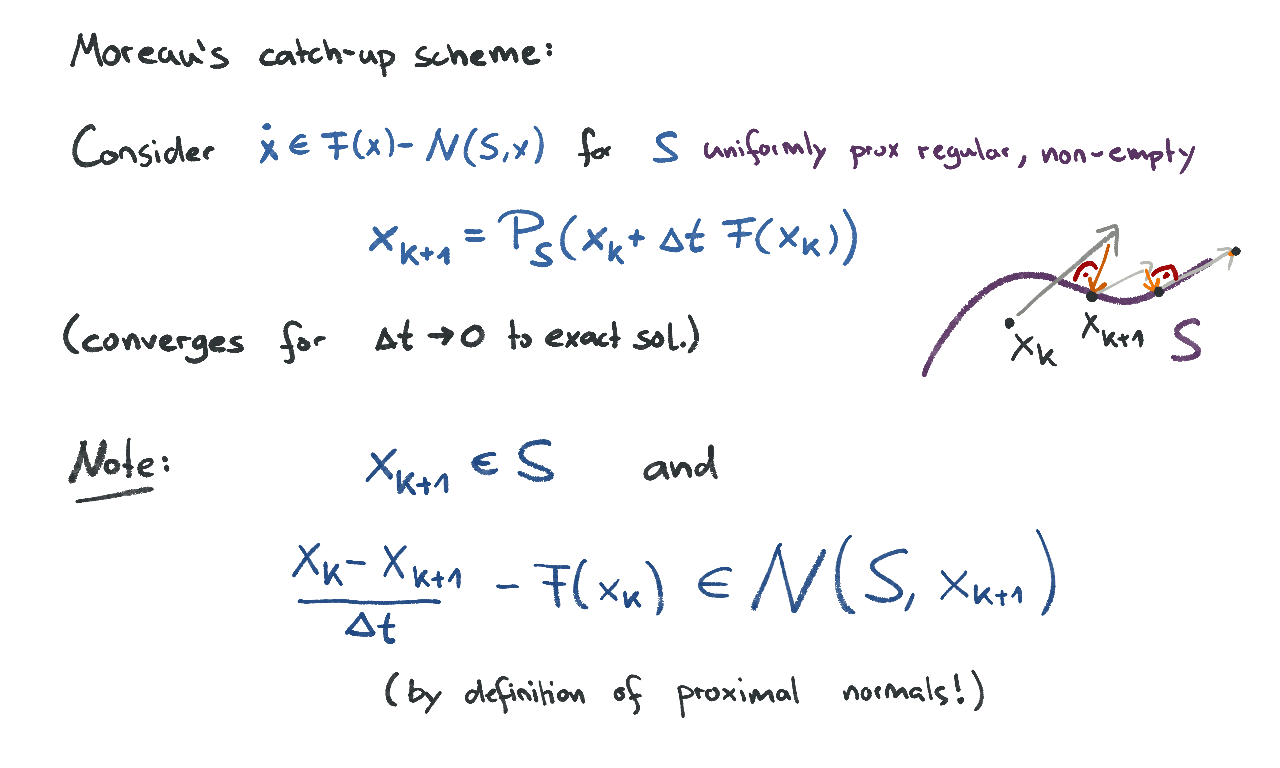 Moreau's catch-up scheme:
Consider ẋ ∈ F(x) - N(S,x) for S uniformly prox regular, non-empty
x_{k+1} = P_S(x_k + Δt F(x_k))
(converges for Δt → 0 to exact sol.)
x_k x_{k+1} S
Note: x_{k+1} ∈ S and
(x_k - x_{k+1})/Δt - F(x_k) ∈ N(S, x_{k+1})
(by definition of proximal normals!)